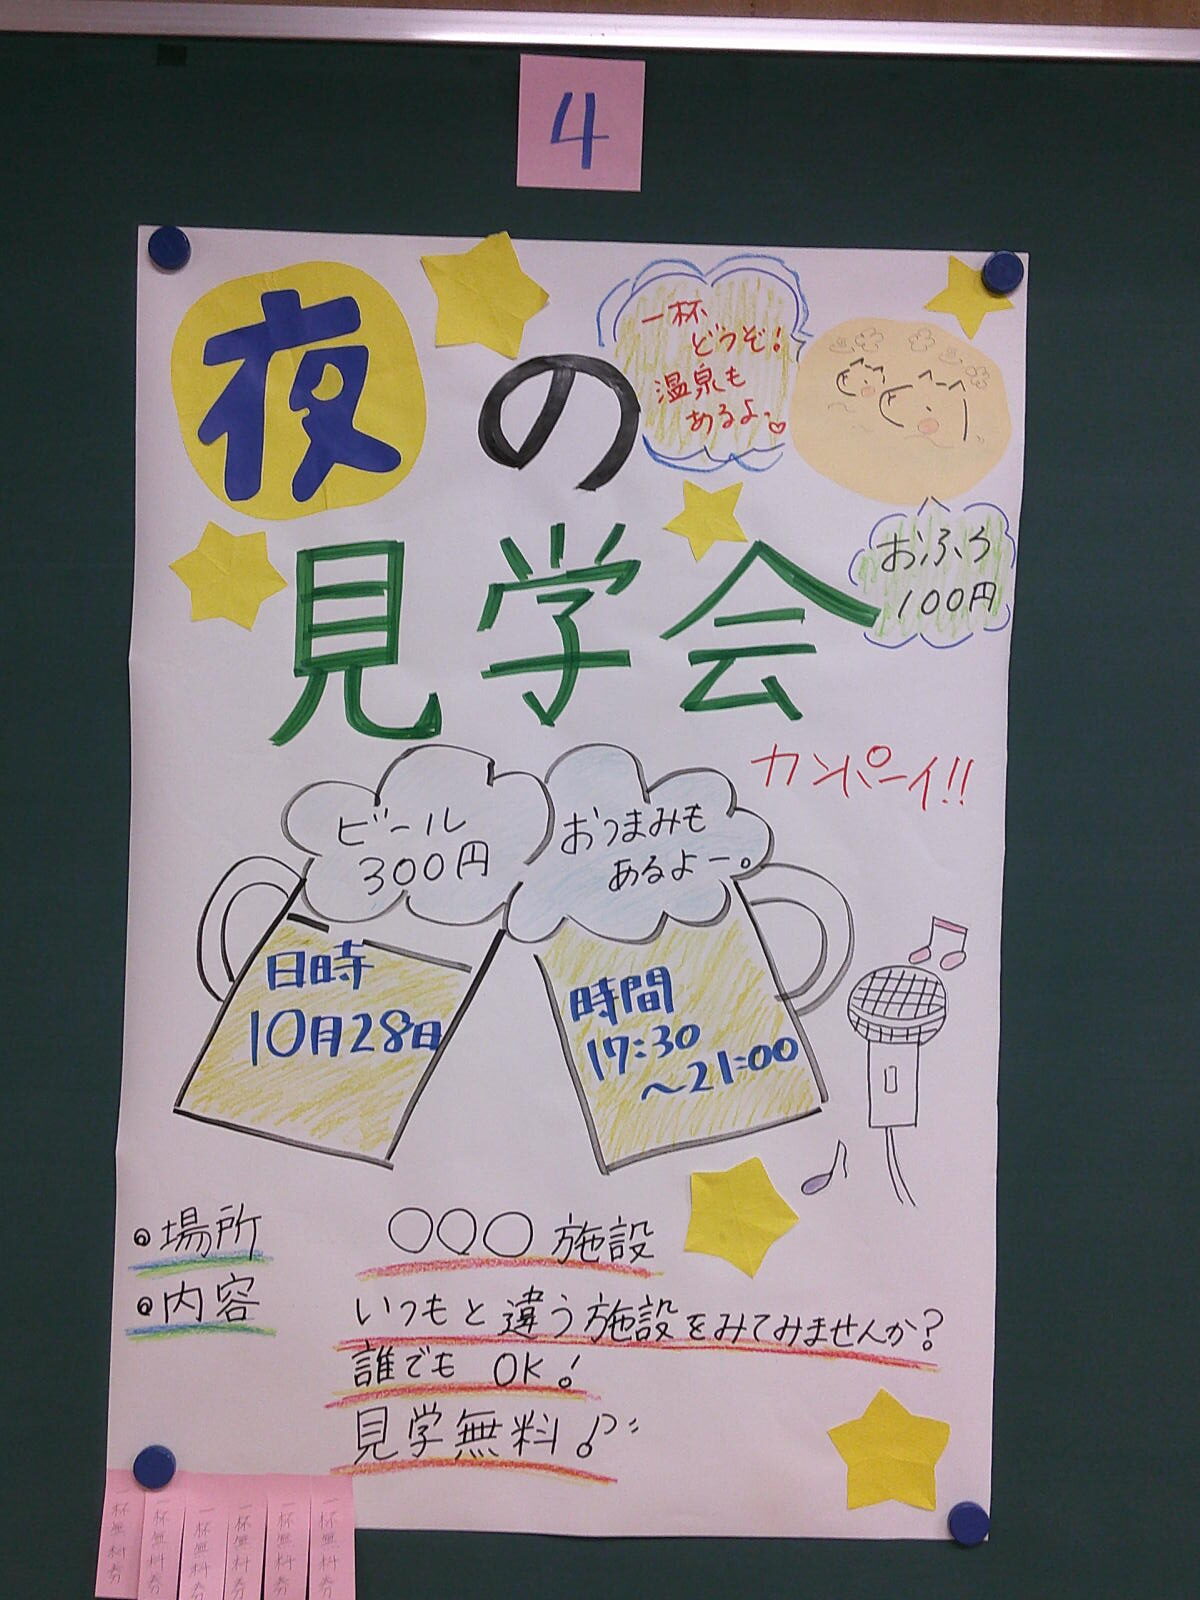 4
夜の
見学会
一杯
どうぞ!
温泉も
あるよ〜♡
おふろ
100円
カンパーイ!!
ビール
300円
おつまみも
あるよー。
日時
10月28日
時間
17:30
〜21:00
場所
○○○施設
内容
いつもと違う施設をみてみませんか?
誰でも OK!
見学無料♪
一杯無料券
一杯無料券
一杯無料券
一杯無料券
一杯無料券
一杯無料券